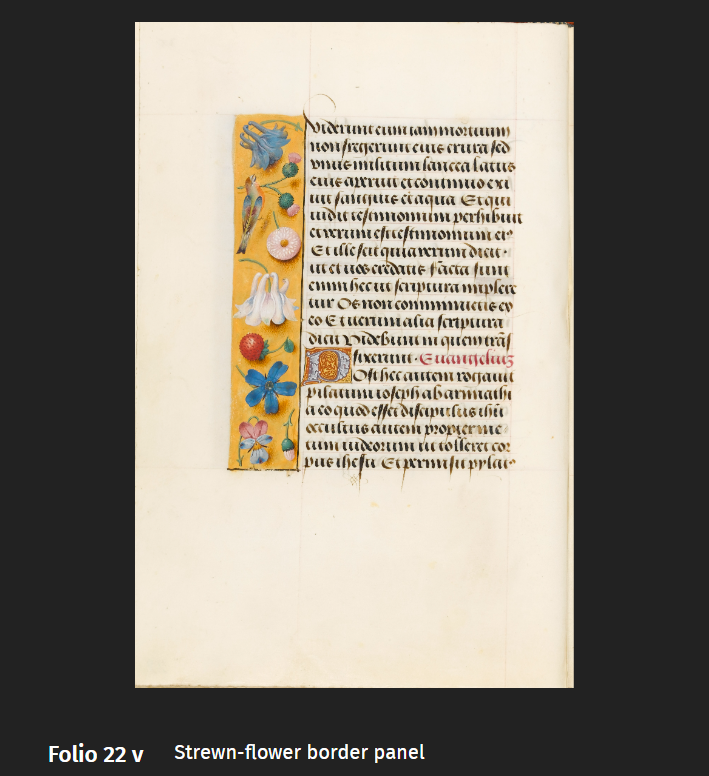 viderunt eum iam mortuum
non fregerunt eius crura sed
vnus militum lancea latus
eius aperuit et continuo exi
uit sanguis et aqua Et qui
uidit testimonium perhibuit
et verum est testimonium ei⁹
Et ille scit quia verum dicit
ut et uos credatis Facta sunt
enim hec ut scriptura implere
tur Os non comminuetis ex
eo Et iterum alia scriptura
dicit Videbunt in quem trās
fixerunt · Euangeliuȝ
Post hec autem rogauit
pilatum ioseph ab arimathi
a eo quod esset discipulus ihū
occultus autem propter me
tum iudeorum ut tolleret cor
pus ihesu Et permisit pylat⁹
Folio 22 v Strewn-flower border panel